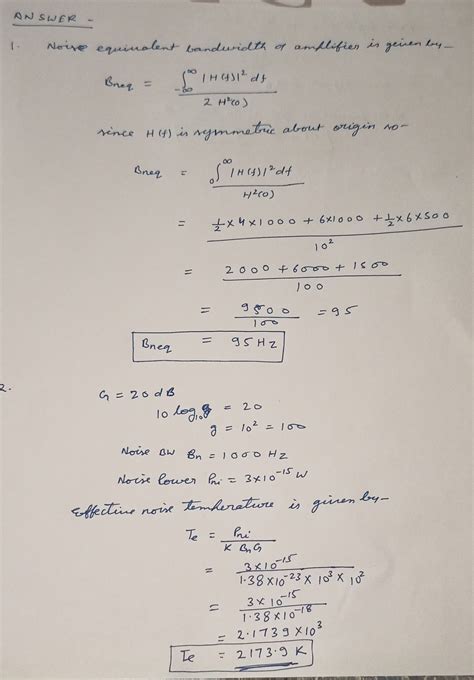 ANSWER -
1. Noise equivalent bandwidth of amplifier is given by -
Bneq = ∫-∞^∞ |H(f)|² df / 2 H²(0)
since H(f) is symmetric about origin so -
Bneq = 0∫^∞ |H(f)|² df / H²(0)
= ½ × 4 × 1000 + 6×1000 + ½ × 6 × 500 / 10²
= 2000 + 6000 + 1500 / 100
= 9500 / 100 = 95
Bneq = 95 Hz
2. G = 20 dB
10 log₁₀ g = 20
g = 10² = 100
Noise BW Bn = 1000 Hz
Noise Power Pni = 3×10⁻¹⁵ W
Effective noise temperature is given by -
Te = Pni / K Bn G
= 3×10⁻¹⁵ / 1.38×10⁻²³ × 10³ × 10²
= 3×10⁻¹⁵ / 1.38×10⁻¹⁸
= 2.1739×10³
Te = 2173.9 K